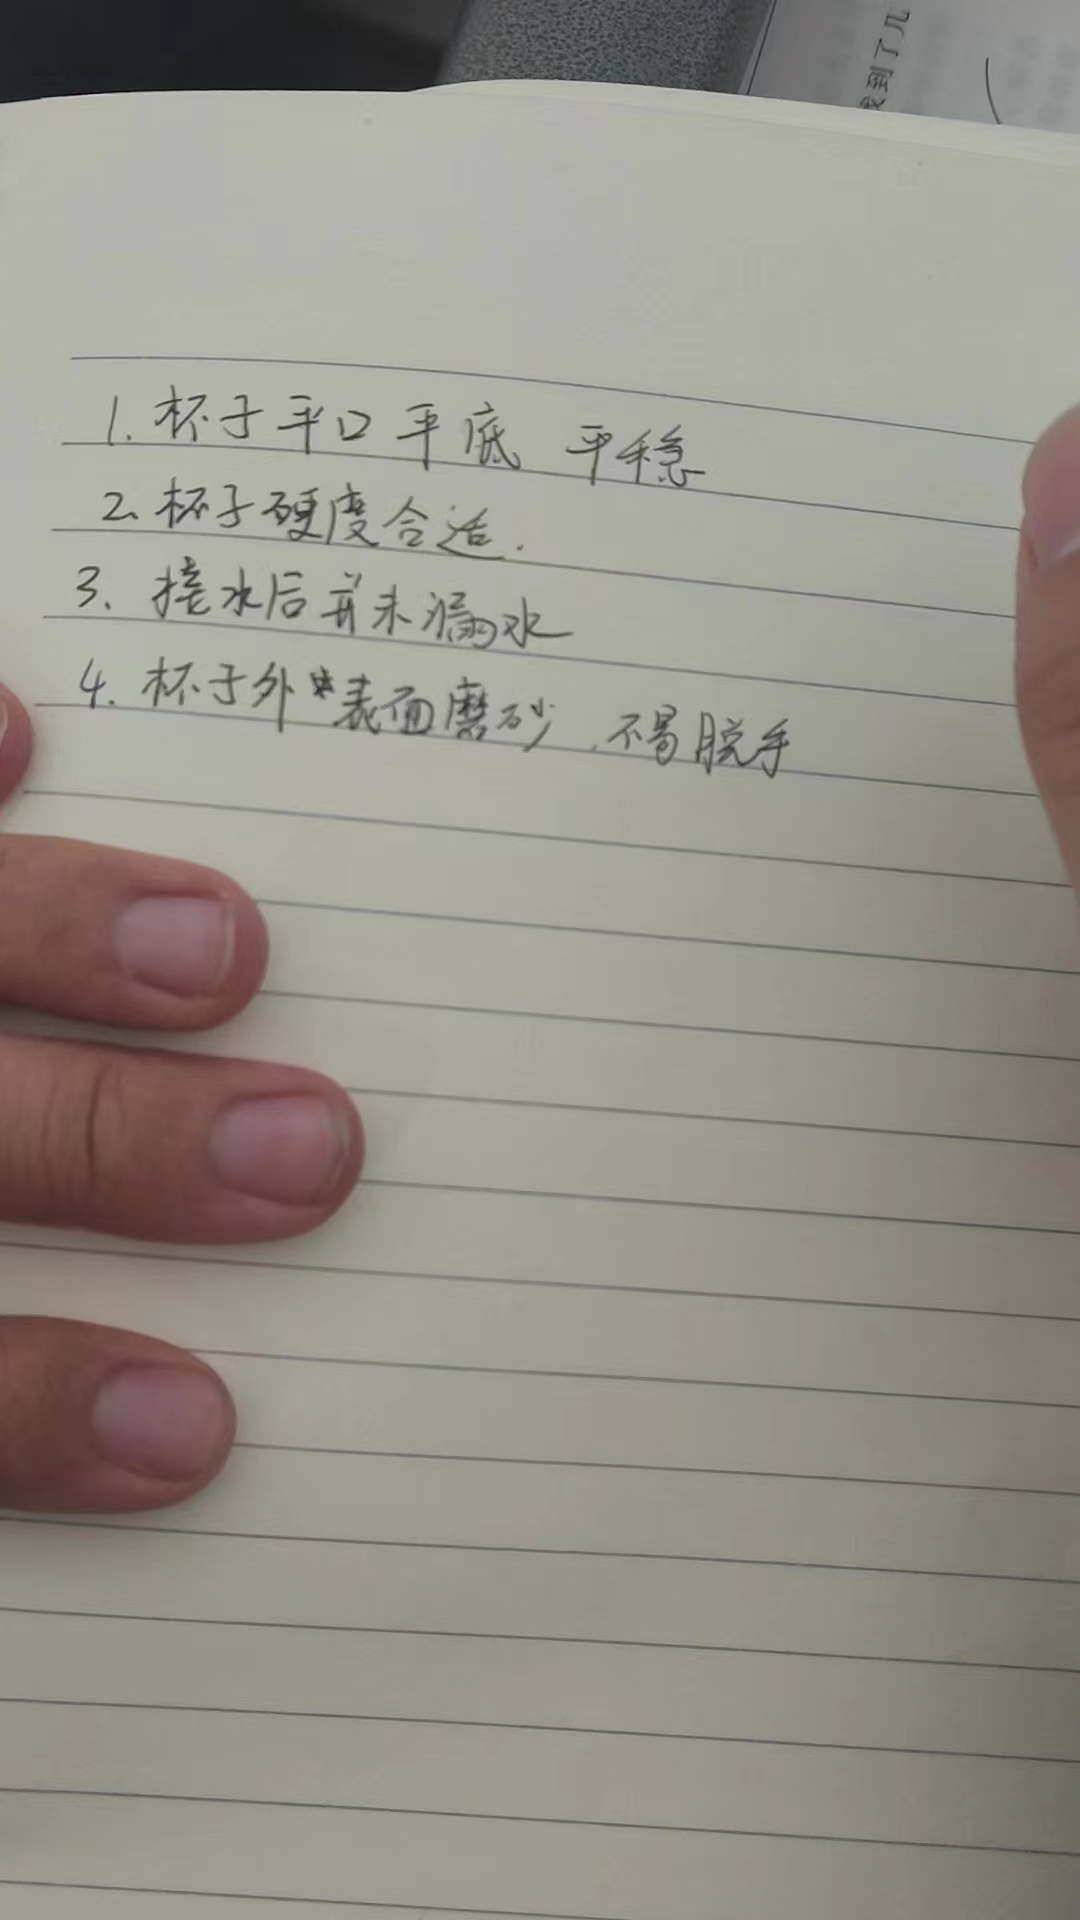 到了几
1. 杯子平口平底 平稳
2. 杯子硬度合适.
3. 接水后并未漏水
4. 杯子外表面磨砂,不易脱手